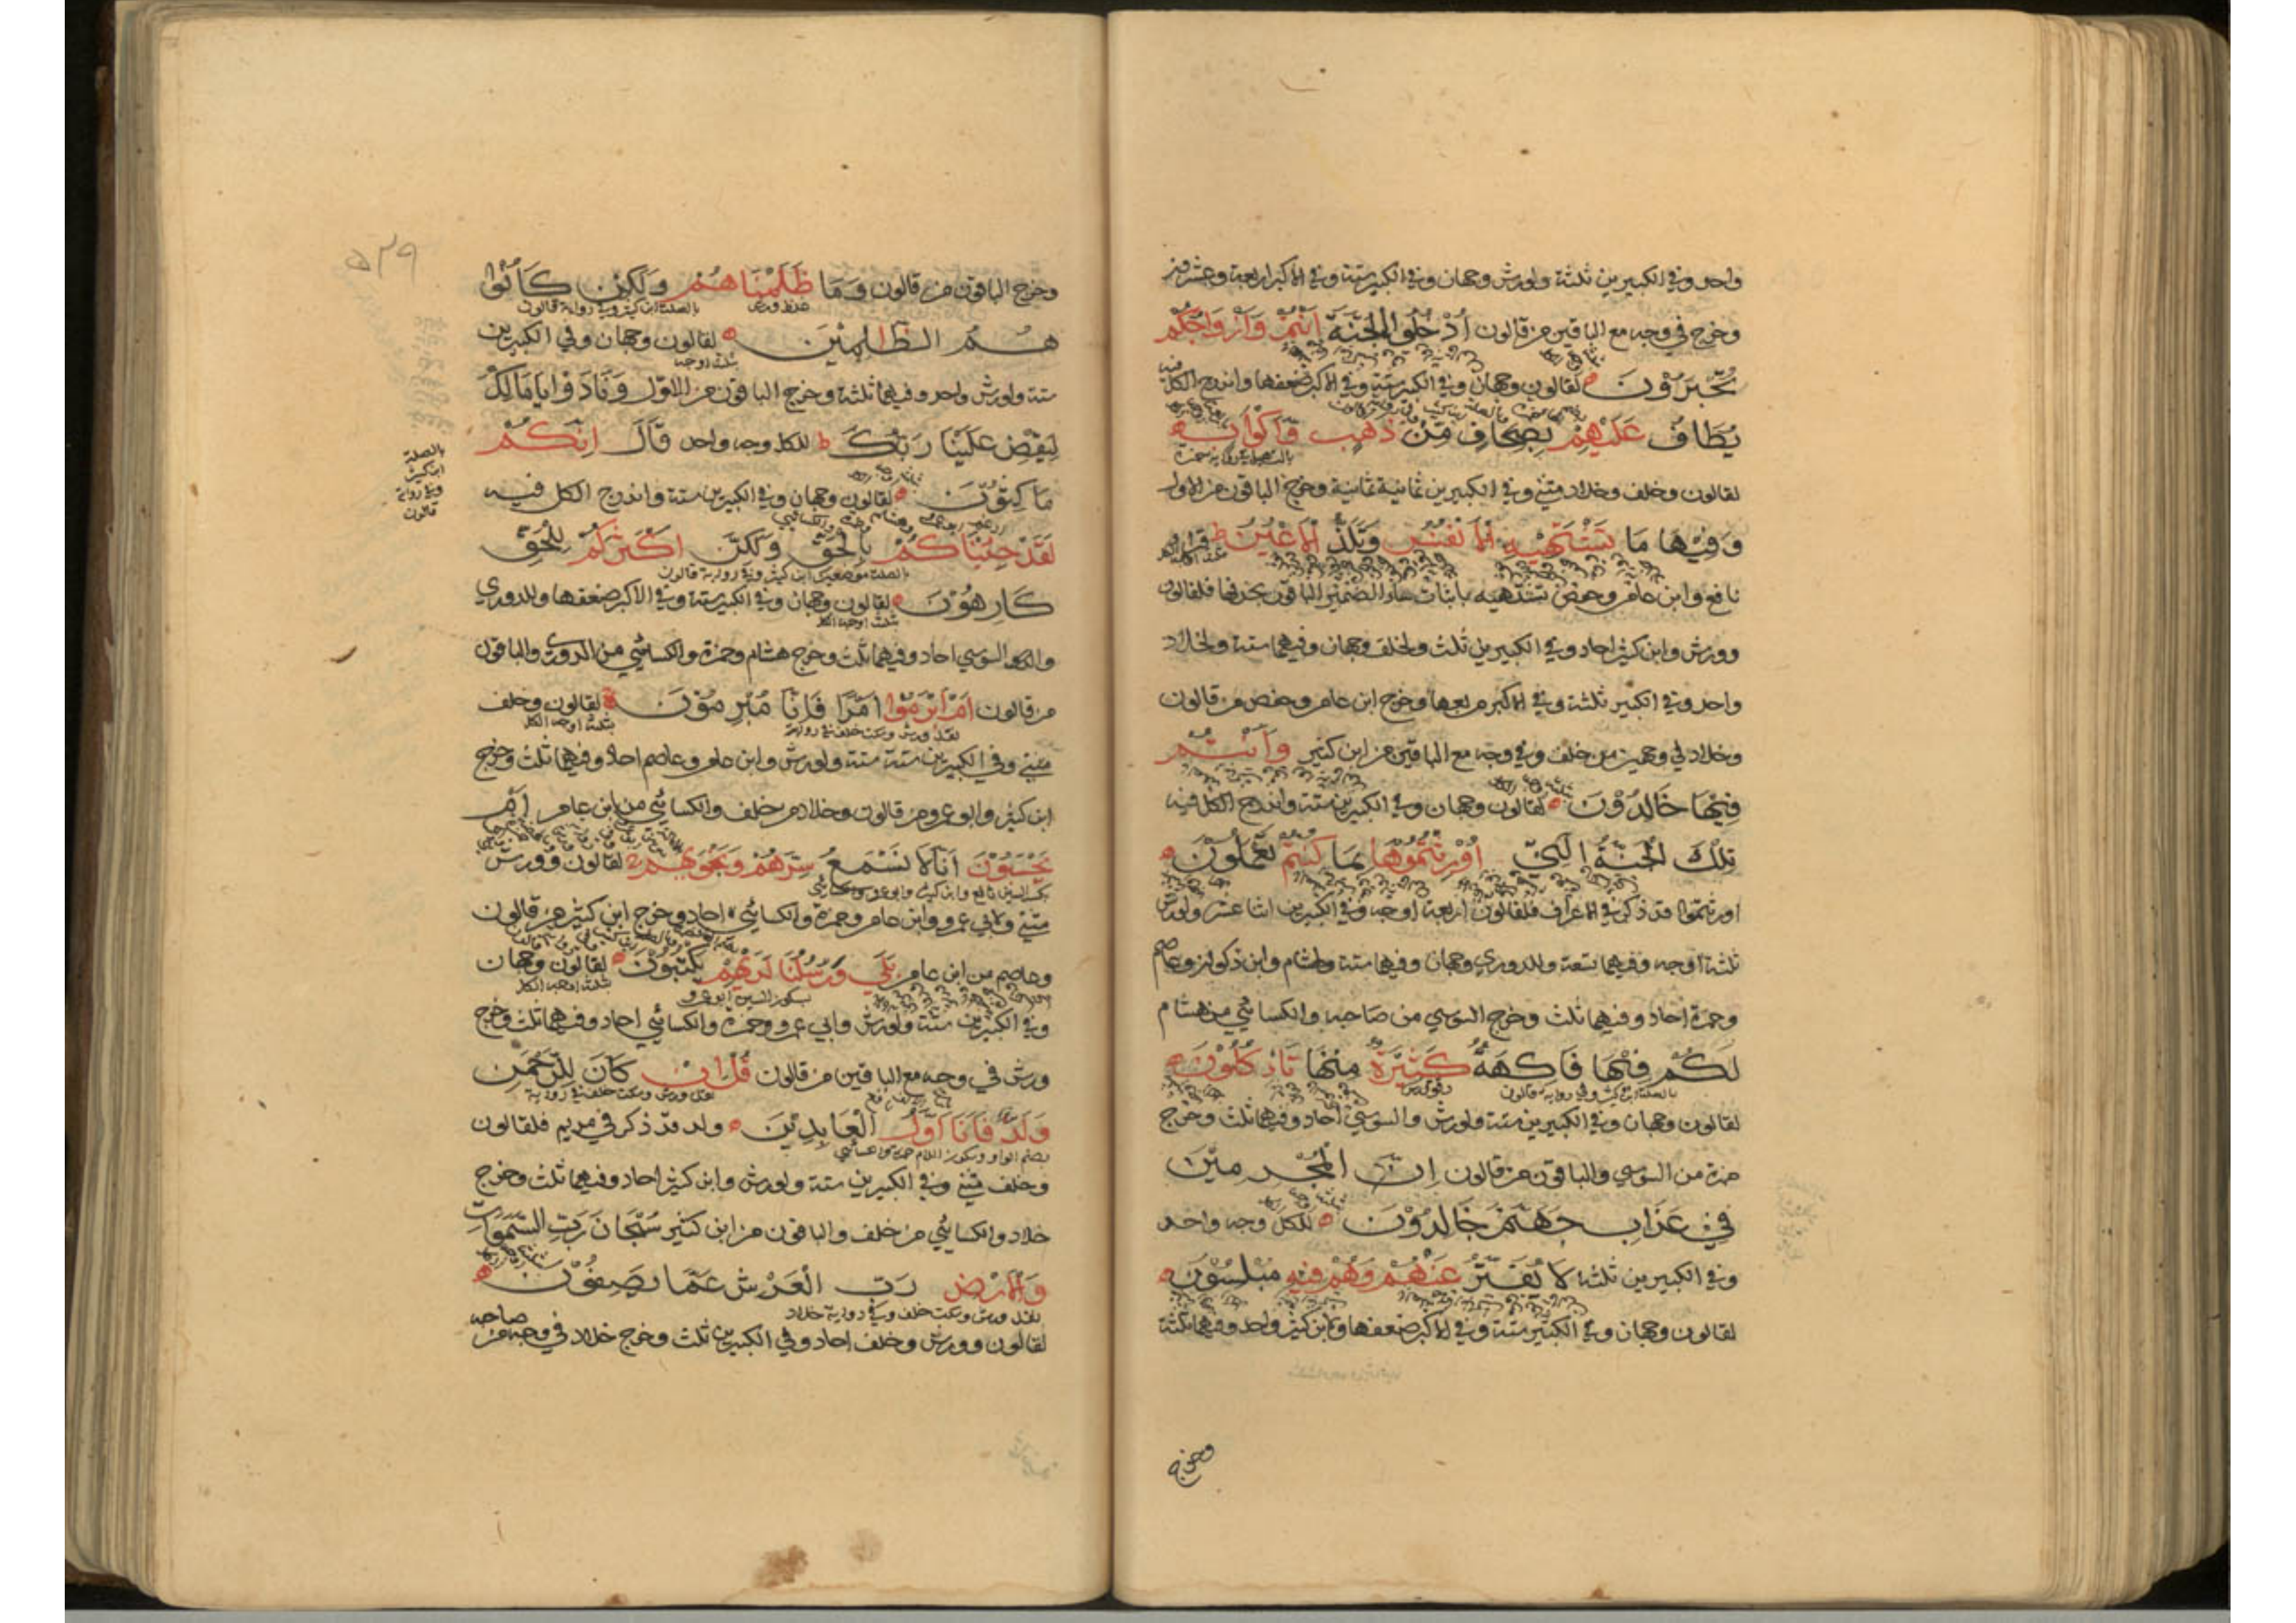 واحد وفي الكبيرين ثلثة ولورش وجهان وفي الكبير ستة وفي الاكبر اربعة وعشرون
وخرج في وجه مع الباقين من قالون اُدْخُلُوا الْجَنَّةَ اَنْتُمْ وَاَزْوَاجُكُمْ
تُحْبَرُوْنَ لقالون وجهان وفي الكبير ستة وفي الاكبر ضعفها واندرج الكل فيه
يُطَافُ عَلَيْهِمْ بِصِحَافٍ مِّنْ ذَهَبٍ وَّاَكْوَابٍ
لقالون وخلف وخلاد مثنى وفي الكبيرين ثمانية ثمانية وخرج الباقون من الاول
وَفِيْهَا مَا تَشْتَهِيْهِ الْاَنْفُسُ وَتَلَذُّ الْاَعْيُنُ ط قرا
نافع وابن عامر وحفص تشتهيه باثبات هاء الضمير الباقون بحذفها فلقالون
وورش وابن كثير احاد وفي الكبيرين ثلث ولخلف وجهان وفيهما ستة ولخلاد
واحد وفي الكبير ثلثة وفي الاكبر مربعها وخرج ابن عامر وحفص من قالون
وخلاد في وجهين من خلف وفي وجه مع الباقين من ابن كثير وَاَنْتُمْ
فِيْهَا خَالِدُوْنَ لقالون وجهان وفي الكبيرين ستة واندرج الكل فيه
تِلْكَ الْجَنَّةُ الَّتِيْ اُوْرِثْتُمُوْهَا بِمَا كُنْتُمْ تَعْمَلُوْنَ
اورثتموها قد ذكر في الاعراف فلقالون اربعة اوجه وفي الكبيرين اثنا عشر ولورش
ثلثة اوجه وفيهما تسعة وللدوري وجهان وفيهما ستة ولهشام وابن ذكوان وعاصم
وحمزة احاد وفيهما ثلث وخرج السوسي من صاحبه والكسائي من هشام
لَكُمْ فِيْهَا فَاكِهَةٌ كَثِيْرَةٌ مِنْهَا تَاْكُلُوْنَ
بالصلة ابن كثير وفي رواية قالون
لقالون وجهان وفي الكبيرين ستة ولورش والسوسي احاد وفيهما ثلث وخرج
حمزة من السوسي والباقون من قالون اِنَّ الْمُجْرِمِيْنَ
فِيْ عَذَابِ جَهَنَّمَ خَالِدُوْنَ للكل وجه واحد
وفي الكبيرين ثلثة لَا يُفَتَّرُ عَنْهُمْ وَهُمْ فِيْهِ مُبْلِسُوْنَ
لقالون وجهان وفي الكبير ستة وفي الاكبر ضعفها ولابن كثير واحد وفيهما ثلثة
وخرج
٥٢٩
وخرج الباقون من قالون وَمَا ظَلَمْنَاهُمْ وَلٰكِنْ كَانُوْا
بالصلة ابن كثير وفي رواية قالون
هُمُ الظَّالِمِيْنَ لقالون وجهان وفي الكبيرين
ثلثة اوجه
ستة ولورش واحد وفيهما ثلثة وخرج الباقون من الاول وَنَادَوْا يَامَالِكُ
لِيَقْضِ عَلَيْنَا رَبُّكَ ط للكل وجه واحد قَالَ اِنَّكُمْ
بالصلة
ابن كثير
وفي رواية
قالون
مَاكِثُوْنَ لقالون وجهان وفي الكبيرين ستة واندرج الكل فيه
لَقَدْ جِئْنَاكُمْ بِالْحَقِّ وَلٰكِنَّ اَكْثَرَكُمْ لِلْحَقِّ
بالصلة موضعين ابن كثير وفي رواية قالون
كَارِهُوْنَ لقالون وجهان وفي الكبير ستة وفي الاكبر ضعفها وللدوري
ثلثة اوجه الكل
والسوسي احاد وفيهما ثلث وخرج هشام وحمزة والكسائي من الدوري والباقون
من قالون اَمْ اَبْرَمُوْا اَمْرًا فَاِنَّا مُبْرِمُوْنَ لقالون وخلف
نقل ورش وسكت خلف في رواية ثلثة اوجه الكل
مثنى وفي الكبيرين ستة ستة ولورش وابن عامر وعاصم احاد وفيهما ثلث وخرج
ابن كثير وابو عمرو من قالون وخلاد من خلف والكسائي من ابن عامر اَمْ
يَحْسَبُوْنَ اَنَّا لَا نَسْمَعُ سِرَّهُمْ وَنَجْوٰىهُمْ لقالون وورش
بكسر السين نافع وابن كثير وابو عمرو وكسائي
مثنى ولابي عمرو وابن عامر وحمزة والكسائي احاد وخرج ابن كثير من قالون
وعاصم من ابن عامر بَلٰى وَرُسُلُنَا لَدَيْهِمْ يَكْتُبُوْنَ لقالون وجهان
بسكون السين ابو عمرو ثلثة اوجه الكل
وفي الكبيرين ستة ولورش وابي عمرو وحمزة والكسائي احاد وفيهما ثلث وخرج
ورش في وجه مع الباقين من قالون قُلْ اِنْ كَانَ لِلرَّحْمٰنِ
نقل ورش وسكت خلف في رواية
وَلَدٌ فَاَنَا اَوَّلُ الْعَابِدِيْنَ ولد قد ذكر في مريم فلقالون
بضم الواو وسكون اللام حمزة وكسائي
وخلف مثنى وفي الكبيرين ستة ولورش وابن كثير احاد وفيهما ثلث وخرج
خلاد والكسائي من خلف والباقون من ابن كثير سُبْحَانَ رَبِّ السَّمٰوَاتِ
وَالْاَرْضِ رَبِّ الْعَرْشِ عَمَّا يَصِفُوْنَ
نقل ورش وسكت خلف وفي رواية خلاد
لقالون وورش وخلف احاد وفي الكبيرين ثلث وخرج خلاد في وجه من صاحبه